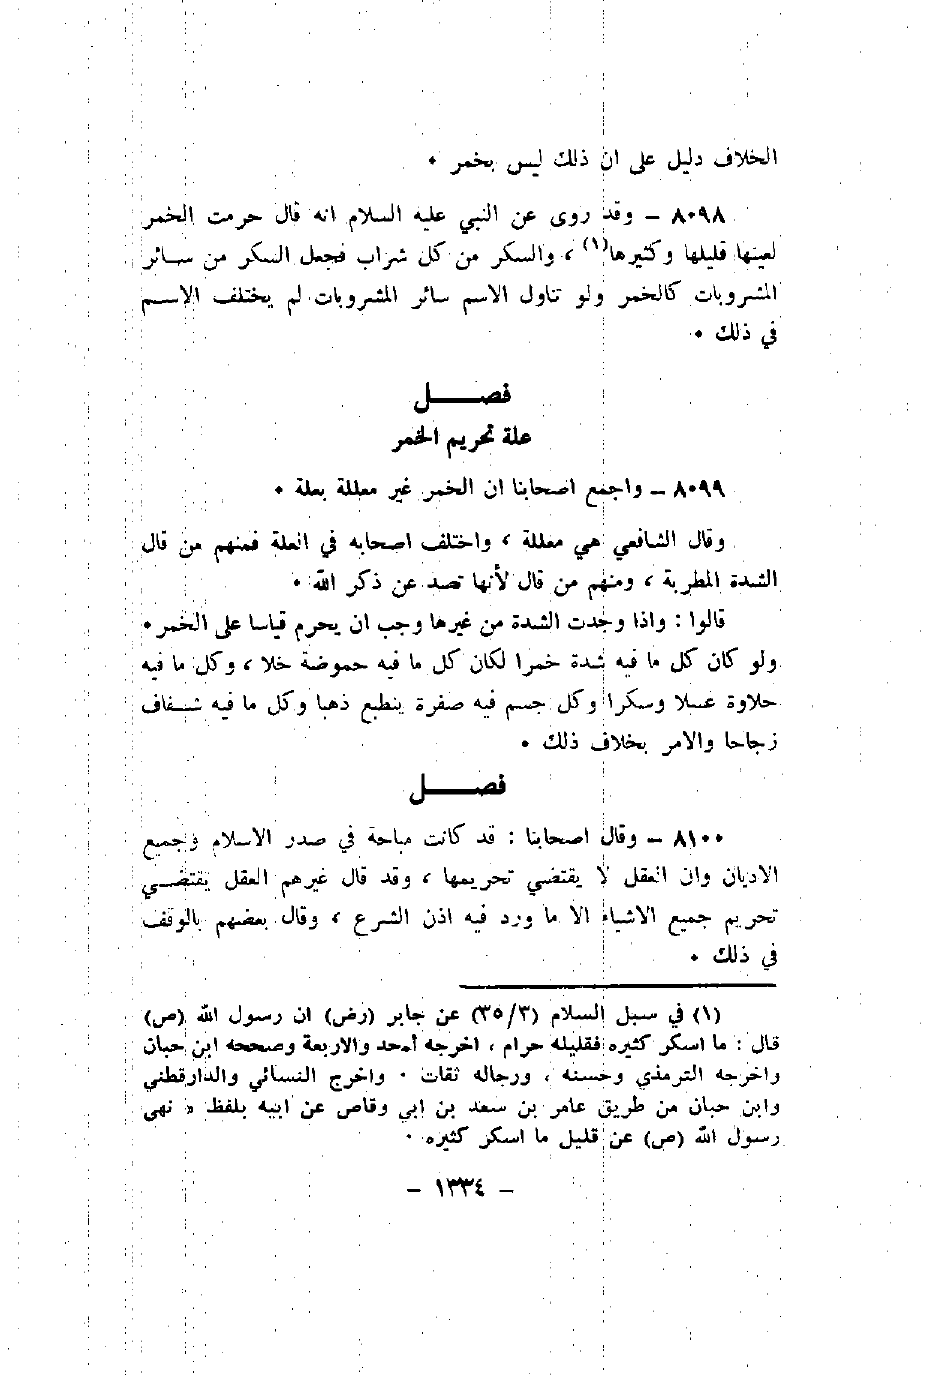 الخلاف دليل على ان ذلك ليس بخمر ٠
٨٠٩٨ – وقد روى عن النبي عليه السلام انه قال حرمت الخمر
لعينها قليلها وكثيرها(١) ، والسكر من كل شراب فجعل السكر من سائر
المشروبات كالخمر ولو تناول الاسم سائر المشروبات لم يختلف الاسم
في ذلك ٠
فصل
علة تحريم الخمر
٨٠٩٩ – واجمع اصحابنا ان الخمر غير معللة بعلة ٠
وقال الشافعي هي معللة ، واختلف اصحابه في العلة فمنهم من قال
الشدة المطربة ، ومنهم من قال لأنها تصد عن ذكر الله ٠
قالوا : واذا وجدت الشدة من غيرها وجب ان يحرم قياسا على الخمر ٠
ولو كان كل ما فيه شدة خمرا لكان كل ما فيه حموضة خلا ، وكل ما فيه
حلاوة عسلا وسكرا وكل جسم فيه صفرة ينطبع ذهبا وكل ما فيه شفاف
زجاجا والامر بخلاف ذلك ٠
فصل
٨١٠٠ – وقال اصحابنا : قد كانت مباحة في صدر الاسلام وجميع
الاديان وان العقل لا يقتضي تحريمها ، وقد قال غيرهم العقل يقتضي
تحريم جميع الاشياء الا ما ورد فيه اذن الشرع ، وقال بعضهم بالوقف
في ذلك ٠
(١) في سبل السلام (٣٥/٣) عن جابر (رض) ان رسول الله (ص)
قال : ما اسكر كثيره فقليله حرام ، اخرجه أحمد والاربعة وصححه ابن حبان
واخرجه الترمذي وحسنه ، ورجاله ثقات ٠ واخرج النسائي والدارقطني
وابن حبان من طريق عامر بن سعد بن ابي وقاص عن ابيه بلفظ « نهى
رسول الله (ص) عن قليل ما اسكر كثيره ٠
– ١٣٣٤ –